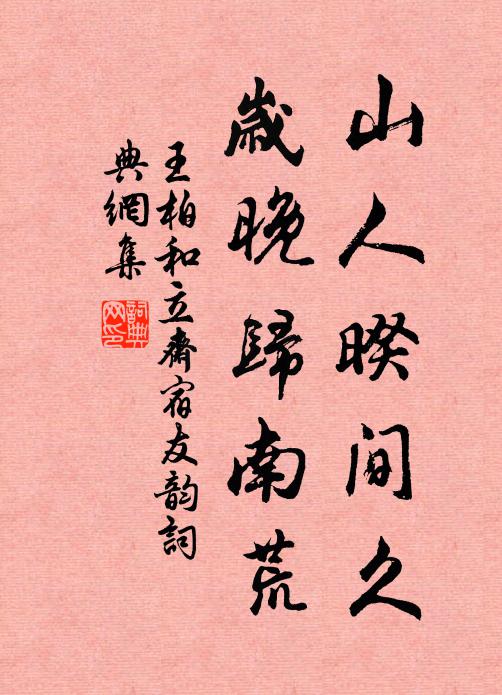 山人暌間久
歲晚歸南荒
王柏和立齋宿友韵詞
典網集
詞典網印